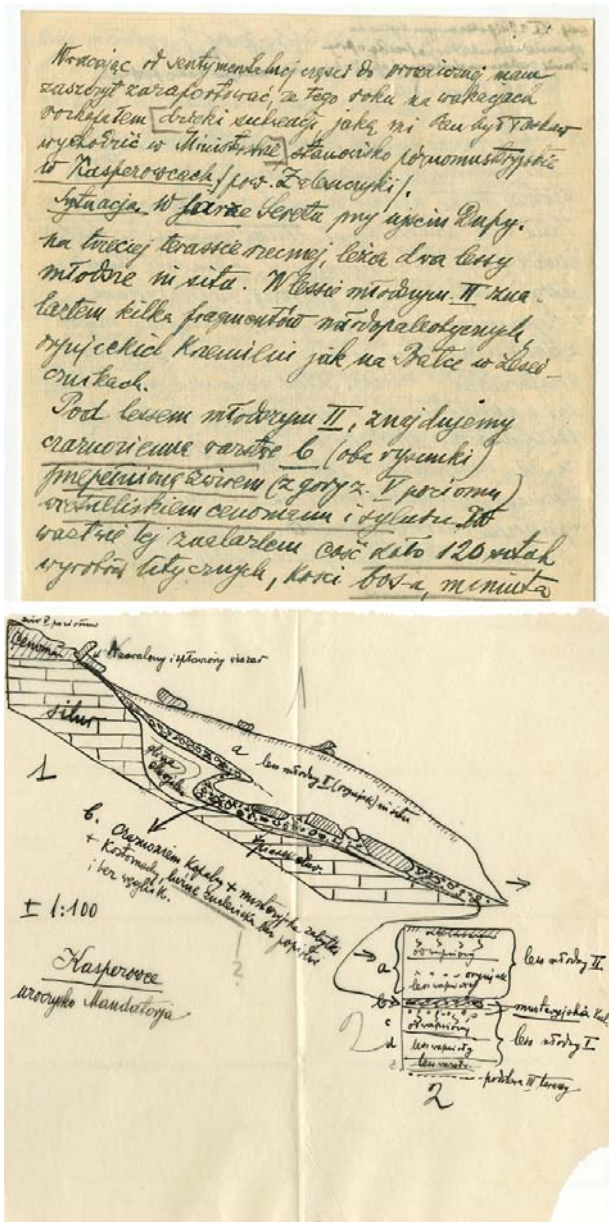 Wracając od sentymentalnej części do prozaicznej mam
zaszczyt zaraportować, że tego roku na wakacjach
rozkopałem [dzięki subwencji jaką mi Pan był łaskaw
wychodzić w Ministerstwie] stanowisko póżnomustierskie
w Kasperowcach /pow. Zaleszczyki/.
Sytuacja. W jarze Seretu przy ujściu Dupy.
na trzeciej terassie rzecznej, leżą dwa lessy
młodsze in situ. W lessie młodszym II zna-
lazłem kilka fragmentów młodopaleolitycznych,
oryniackich Kremilni jak na Bałce w Lesie-
cznikach.
Pod lessem młodszym II, znajdujemy
czarnoziemną warstwę b (oba rysunki)
przepełnioną żwirem (z góry z V poziomu)
cenomanu i syluru. W
warstwie tej znalazłem coś koło 120 sztuk
wyrobów litycznych, kości bos-a, mamuta
żwir V poziomu
cenoman
Nawalony i spławiony ciszar
silur
1
1
a less młodszy II (oryniak) in situ
glina
b. Czarnoziem kopalny + mustieryjskie zabytki
+ Kości
i bez węgielk.
?
± 1:100
Kasperowce
uroczysko Mandatorja
a
odwapniony
oryniak
less wapnisty
less młodszy II
b
musteryjska kul.
c
odwapniony
d
less wapnisty
less młodszy I
podstwa III terasy
2
2